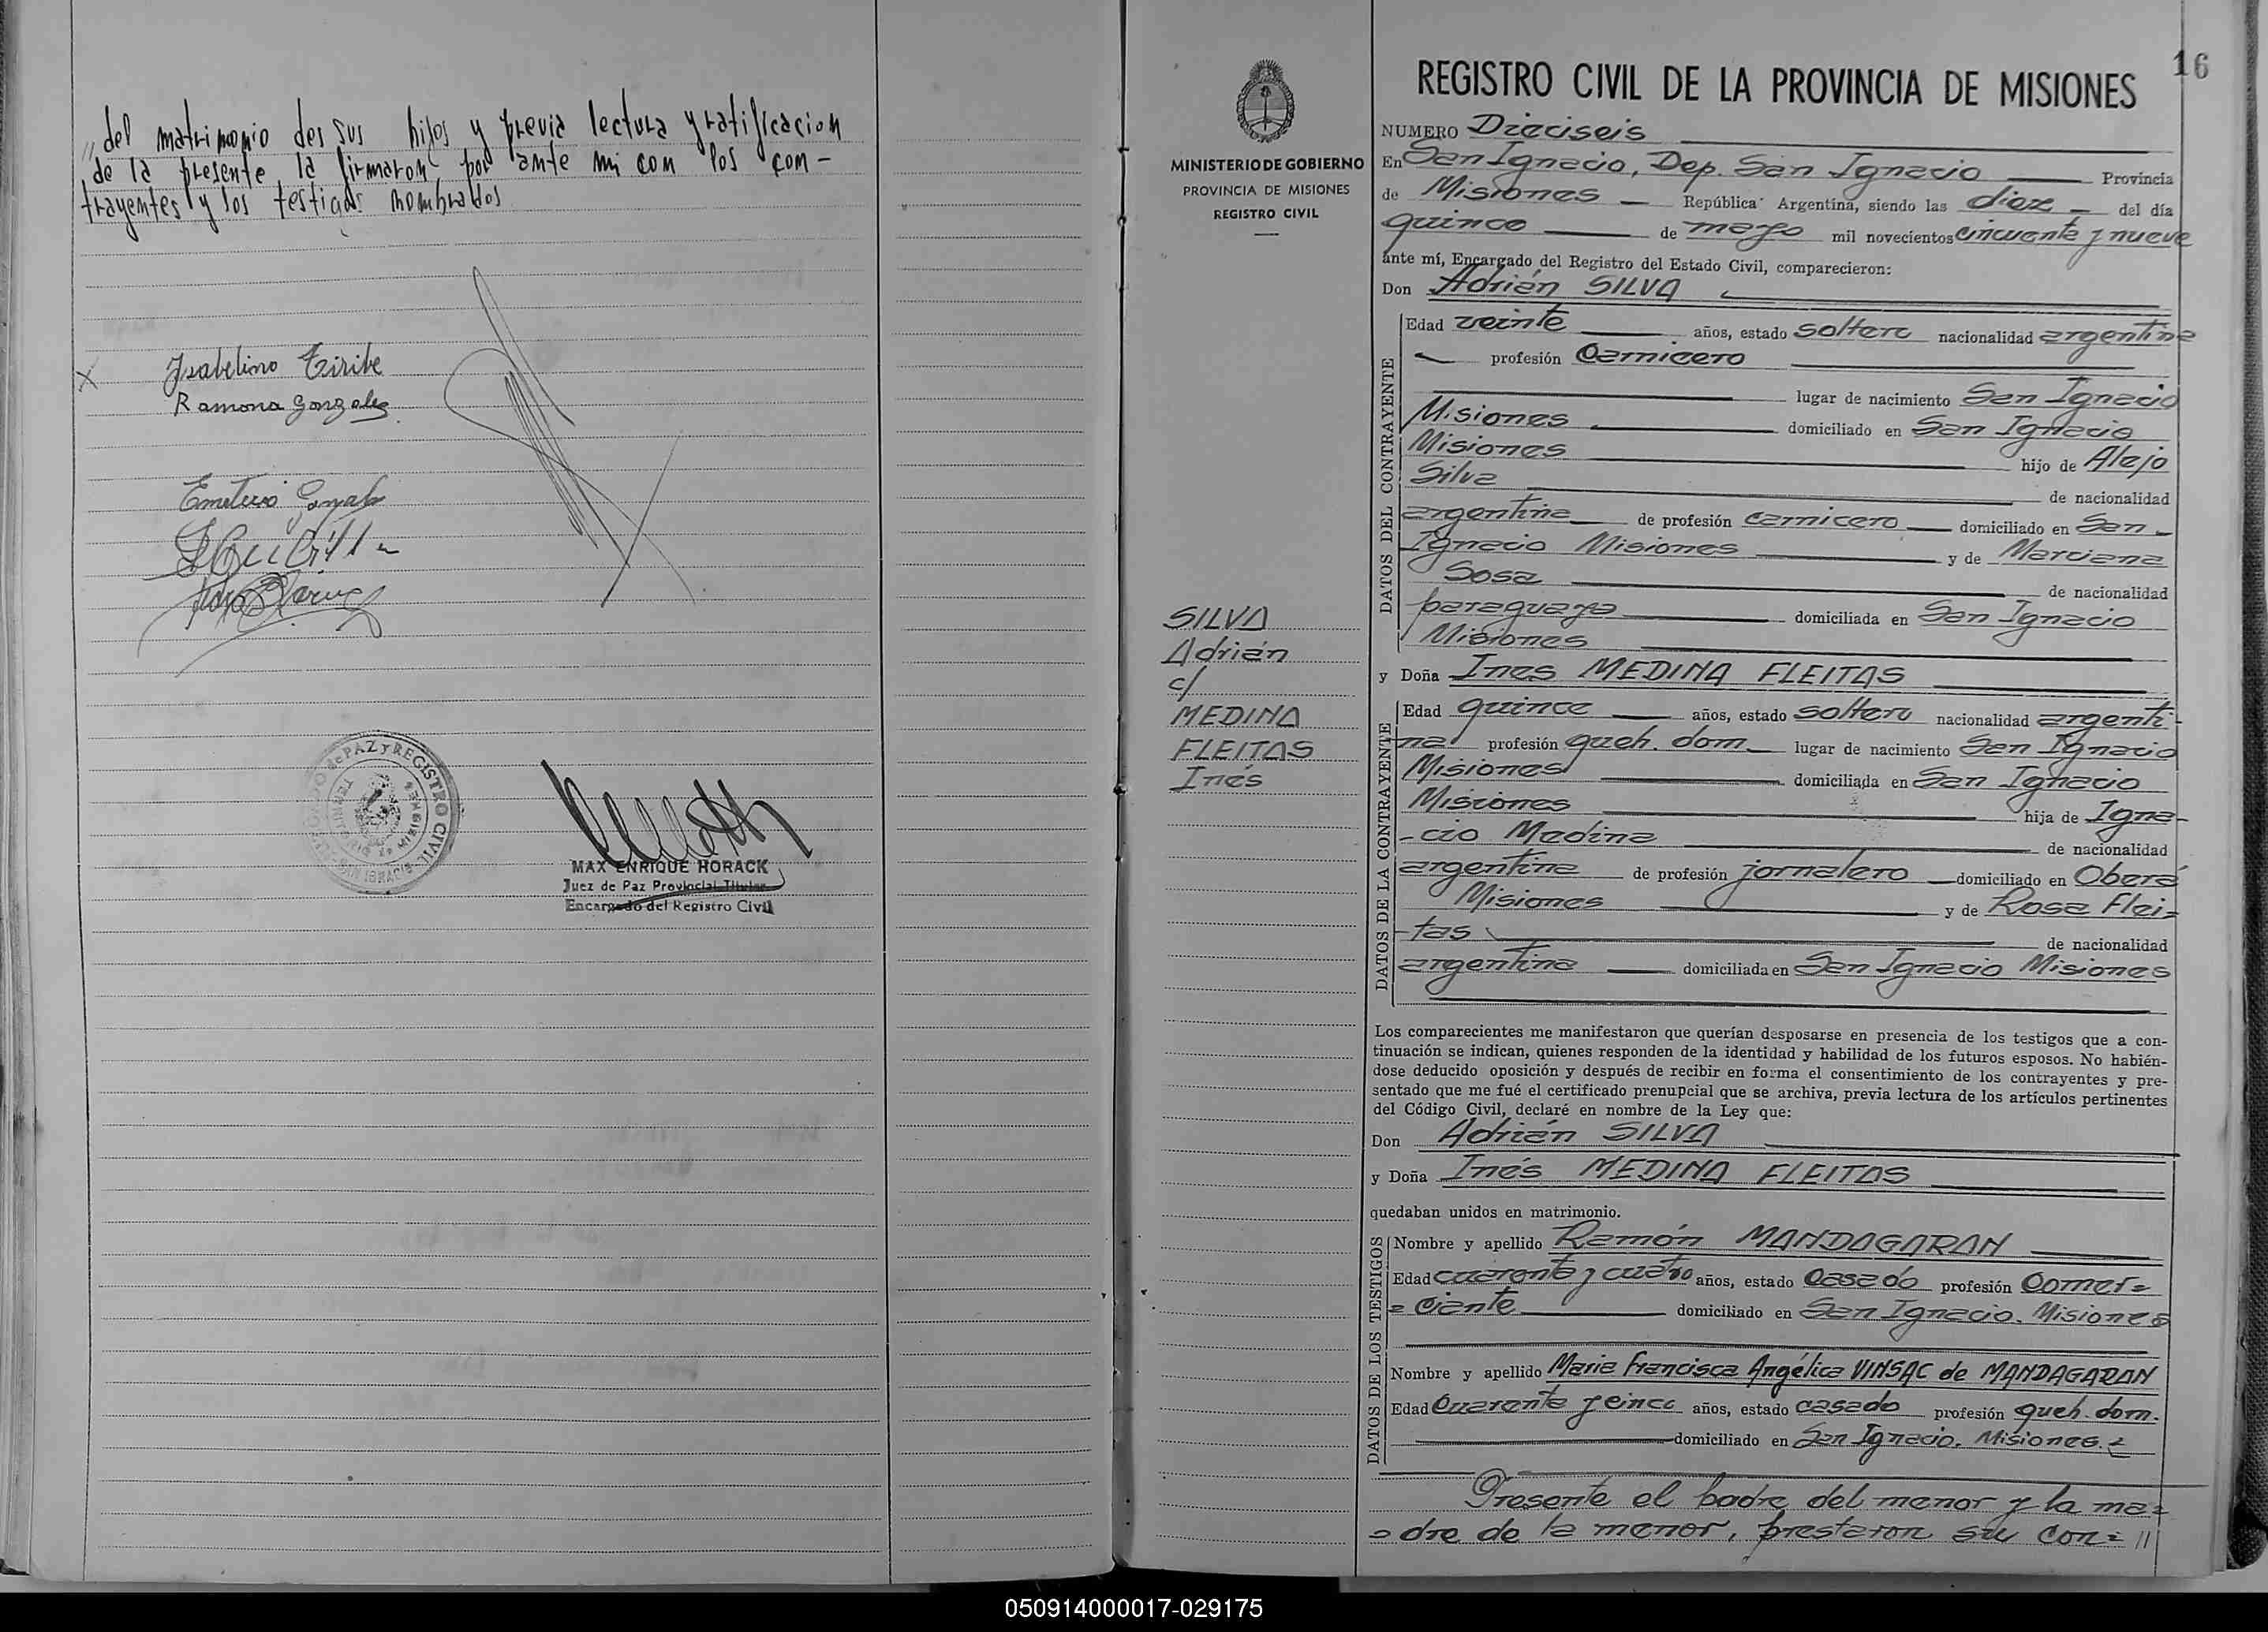 ,, del matrimonio des sus hijos y previa lectura y ratificacion
de la presente, la firmaron por ante mi con los con-
trayentes y los testigos nombrados
Isabelino
Ramona Gonzalez
Emeterio
JUZGADO de PAZ y REGISTRO CIVIL
SAN IGNACIO
MAX ENRIQUE HORACK
Juez de Paz Provincial Titular
Encargado del Registro Civil
16
MINISTERIO DE GOBIERNO
PROVINCIA DE MISIONES
REGISTRO CIVIL
SILVA
Adrián
c/
MEDINA
FLEITAS
Inés
REGISTRO CIVIL DE LA PROVINCIA DE MISIONES
NUMERO Dieciseis
En San Ignacio, Dep. San Ignacio Provincia
de Misiones República Argentina, siendo las diez del día
quince de mayo mil novecientos cincuenta y nueve
ante mí, Encargado del Registro del Estado Civil, comparecieron:
Don Adrián SILVA
DATOS DEL CONTRAYENTE
Edad veinte años, estado soltero nacionalidad argentina
profesión Carnicero
lugar de nacimiento San Ignacio
Misiones domiciliado en San Ignacio
Misiones hijo de Alejo
Silva de nacionalidad
argentina de profesión carnicero domiciliado en San
Ignacio Misiones y de Marciana
Sosa de nacionalidad
paraguaya domiciliada en San Ignacio
Misiones
y Doña Ines MEDINA FLEITAS
DATOS DE LA CONTRAYENTE
Edad quince años, estado soltera nacionalidad argenti-
na profesión queh. dom. lugar de nacimiento San Ignacio
Misiones domiciliada en San Ignacio
Misiones hija de Igna-
-cio Medina de nacionalidad
argentina de profesión jornalero domiciliado en Oberá
Misiones y de Rosa Flei=
-tas de nacionalidad
argentina domiciliada en San Ignacio Misiones
Los comparecientes me manifestaron que querían desposarse en presencia de los testigos que a con-
tinuación se indican, quienes responden de la identidad y habilidad de los futuros esposos. No habién-
dose deducido oposición y después de recibir en forma el consentimiento de los contrayentes y pre-
sentado que me fué el certificado prenupcial que se archiva, previa lectura de los artículos pertinentes
del Código Civil, declaré en nombre de la Ley que:
Don Adrián SILVA
y Doña Inés MEDINA FLEITAS
quedaban unidos en matrimonio.
DATOS DE LOS TESTIGOS
Nombre y apellido Ramón MANDAGARAN
Edad cuarenta y cuatro años, estado Casado profesión Comer=
= ciante domiciliado en San Ignacio. Misiones
Nombre y apellido Maria Francisca Angélica VINSAC de MANDAGARAN
Edad Cuarenta y cinco años, estado casado profesión queh. dom.
domiciliado en San Ignacio. Misiones.
Presente el padre del menor y la ma=
= dre de la menor, prestaron su con= //
050914000017-029175